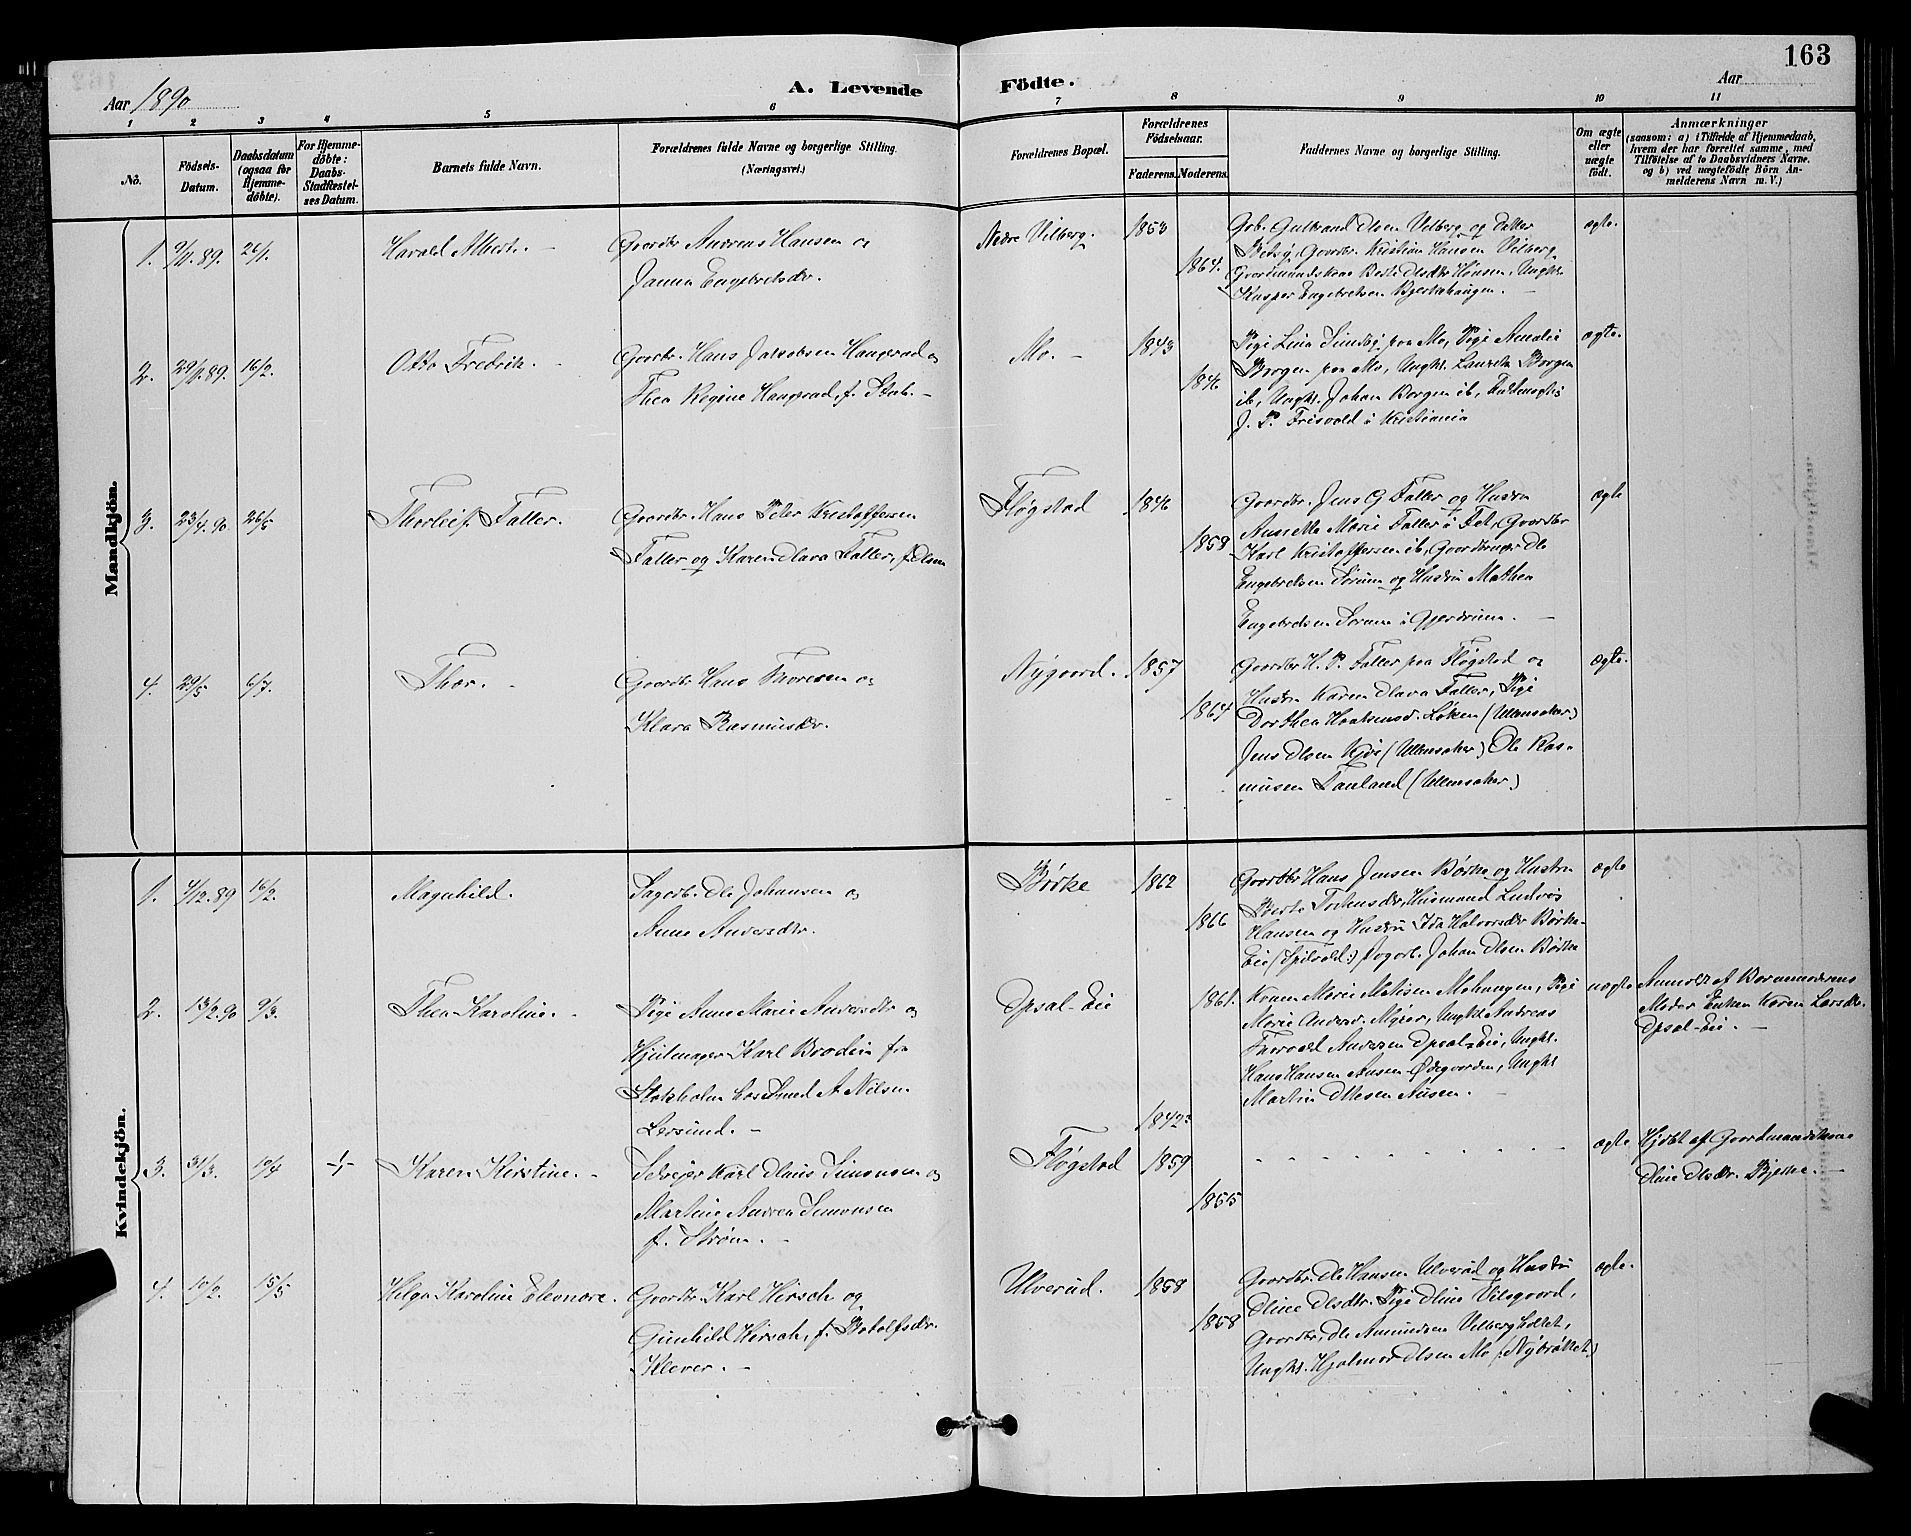 163
Aar 1890
A. Levende Födte.
Aar
1 2 3 4 5 6 7 8 9 10 11
No.
Födsels-Datum.
Daabsdatum (ogsaa for Hjemmedöbte).
For Hjemmedöbte: Daabs-Stadfæstelses Datum.
Barnets fulde Navn.
Forældrenes fulde Navne og borgerlige Stilling. (Næringsvei.)
Forældrenes Bopæl.
Forældrenes Födselsaar.
Faderens. Moderens.
Faddernes Navne og borgerlige Stilling.
Om ægte eller uægte födt.
Anmærkninger
(saasom: a) i Tilfælde af Hjemmedaab, hvem der har forrettet samme, med Tilföielse af to Daabsvidners Navne. og b) ved uægtefödte Börn Anmelderens Navn m. V.)
Mandkjön.
1. 9/11.89. 26/1. Harald Albert.
Gaardbr Andreas Hansen og
Janna Engebretsdr.
Nedre Vilberg. 1853 1864.
Gbr. Gulbrand Olsen Vilberg og Datter
Betsy, Gaardbr. Kristian Hansen Vilberg
Gaardmandskone Berte Olsdtr Hansen, Ungk.
Kasper Engebretsen Bjertnhaugen.
ægte.
2. 29/11.89. 16/2. Otto Fredrik.
Gaardbr. Hans Jakobsen Haugerad og
Thea Regine Haugerad, f. Stub.
Mo. 1843 1846
Pige Lina paa Mo, Pige Amalie
Borgen paa Mo, Ungk. Lauritz Borgen
ib, Ungk. Johan Borgen ib,
J. P. Frisvold i Kristiania
ægte.
3. 23/4.90 26/5 Thorleif Faller.
Gaardbr. Hans Peter Kristoffersen
Faller og Karen Olava Faller, f. Olsen
Fløgstad 1846 1858
Gaardbr. Jens G Faller og Hustru
Annette Marie Faller i Fet, Gaardbr
Karl Kristoffersen ib, Gaardbruger Ole
Engebretsen Sörum og Hustru Mathea
Engebretsen Sörum i Gjerdrum.
ægte
4. 29/5 6/7. Thor.
Gaardbr Hans Thoresen og
Klara Rasmusdr.
Nygaard. 1857 1864
Gaardbr H. P. Faller paa Fløgstad og
Hustru Karen Olava Faller, Pige
Dorthea Haakensd. Løken (Ullensaker)
Jens Olsen (Ullensaker) Ole Ras-
musen (Ullensaker)
ægte.
Kvindekjön.
1. 4/12.89 16/2. Magnhild.
Sagarb. Ole Johansen og
Anne Andersdtr.
Børke 1862 1866
Gaardbr Hans Jensen Børke og Hustru
Berte Husmand Ludvig
Hansen og Hustru Ida Halvorsdtr Børke-
Eie Sagarb. Johan Olsen Børke
ægte
2. 13/2.90 9/3. Thea Karoline.
Pige Anne Marie Andersdtr og
Hjulmager Karl Brodin fra
Stokholm hos Smed A Nilsen
Lersund.
Opsal-Eie 1861.
Marie Matisen Mohaugen, Pige
Marie Andersd. Myrer, Ungk. Andreas
Andersen Opsal-Eie, Ungk.
Hans Hansen Ausen-Ødegaarden, Ungk
Martin Ottesen Ausen.
uægte
Anmeldt af Barnemoderens
Moder Enken Karen Larsdtr.
Opsal-Eie.
1842?
3. 31/3. 19/4 -/- Karen Kirstine.
Selveier Karl Olaus Simonsen og
Martine Andrea Simonsen
f. Strøm.
Fløgstad 1859 1855
ægte
Hjdbt af Gaardmandskone
Oline Olsdtr. Bjerke.
4. 10/2. 15/5 Helga Karoline Eleonore.
Gaardbr. Karl Hirsch og
Gunhild Hirsch, f. Botolfsdr.
Klever.
Ulverud. 1858 1858
Gaardbr. Ole Hansen Ulverud og Hustru
Oline Olsdtr. Pige Oline Vilsgaard,
Gaardbr. Ole Amundsen Vilberghollet,
Ungk. Hjalmar Olsen Mo (Nybrøttet)
ægte.